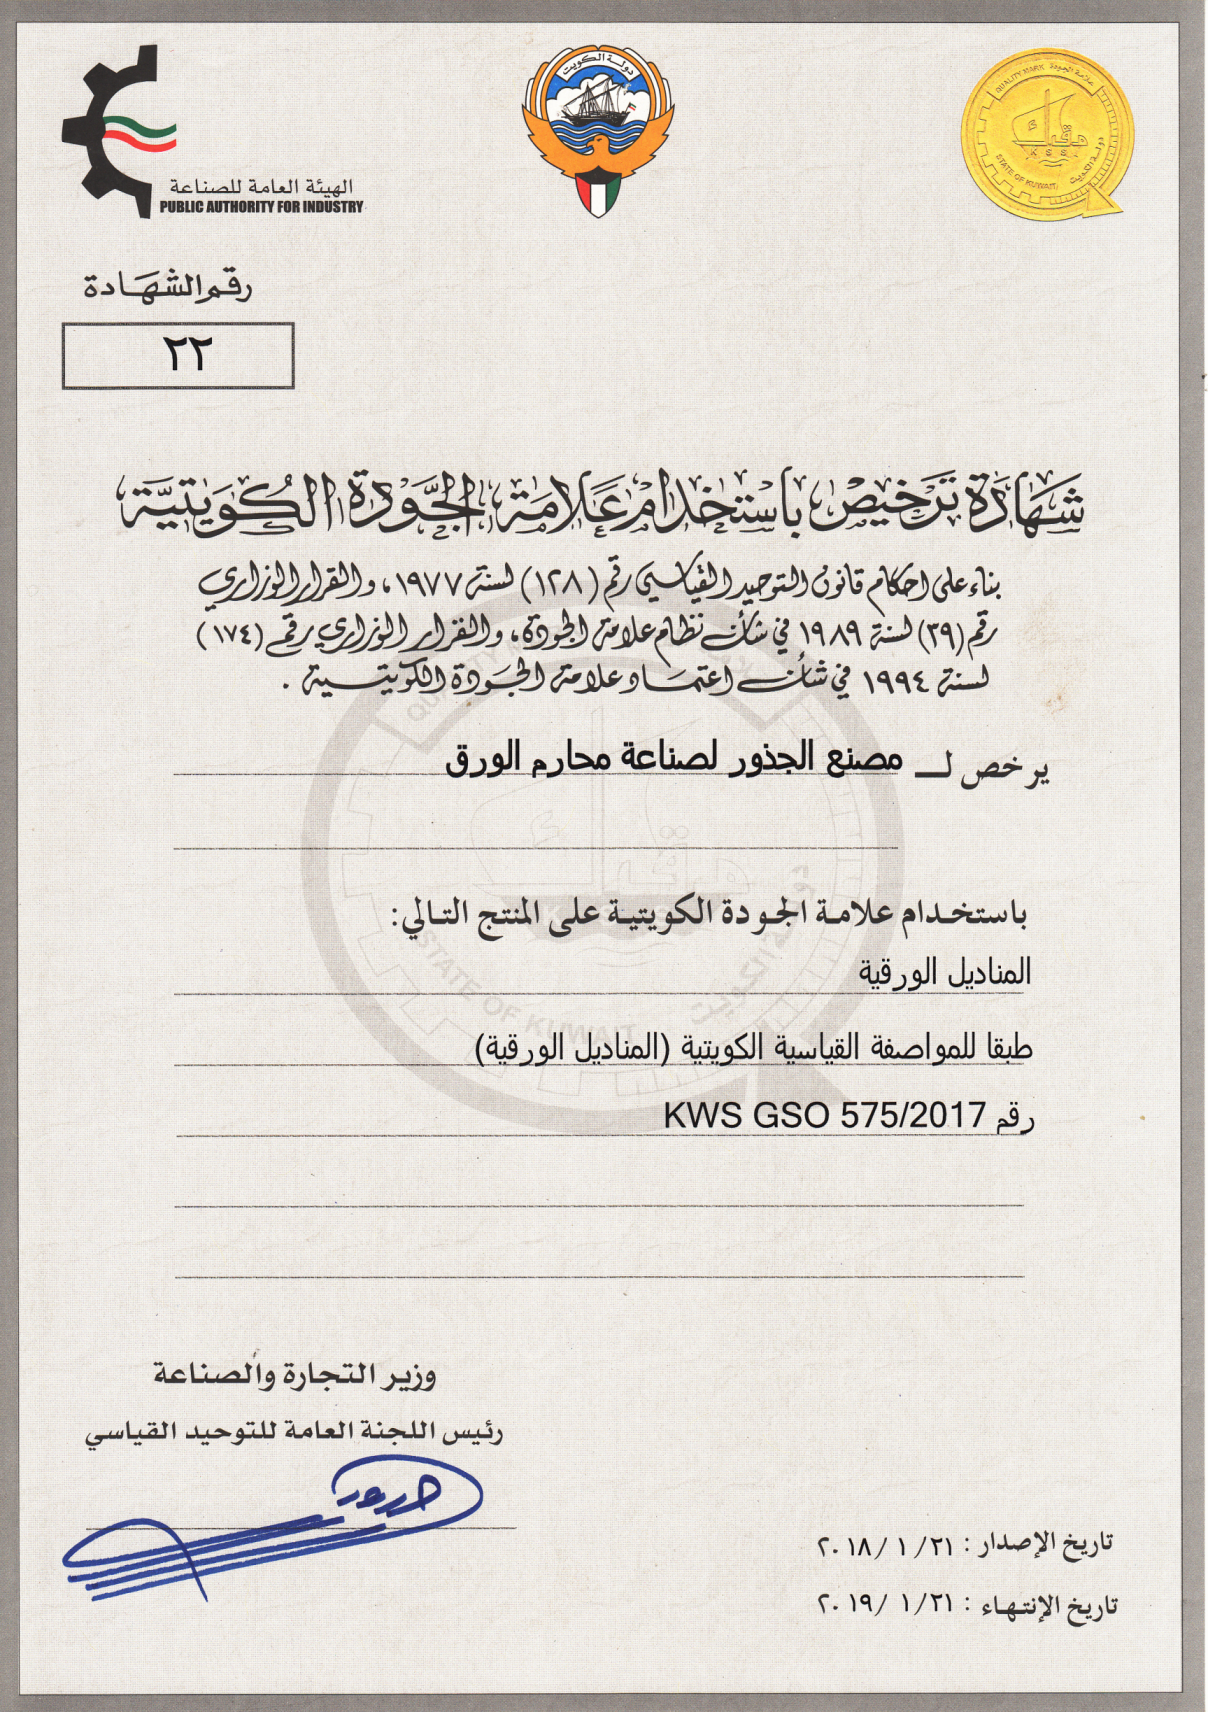 الهيئة العامة للصناعة
PUBLIC AUTHORITY FOR INDUSTRY
دولة الكويت
QUALITY MARK علامة الجودة
هقاك
KSS
STATE OF KUWAIT دولة الكويت
رقم الشهادة
٢٢
شهادة ترخيص باستخدام علامة الجودة الكويتية
بناء على احكام قانون التوحيد القياسي رقم (١٢٨) لسنة ١٩٧٧، والقرار الوزاري
رقم (٣٩) لسنة ١٩٨٩ في شأن نظام علامة الجودة، والقرار الوزاري رقم (١٧٤)
لسنة ١٩٩٤ في شأن اعتماد علامة الجودة الكويتية .
يرخص لـ مصنع الجذور لصناعة محارم الورق
باستخدام علامة الجودة الكويتية على المنتج التالي:
المناديل الورقية
طبقا للمواصفة القياسية الكويتية (المناديل الورقية)
رقم KWS GSO 575/2017
وزير التجارة والصناعة
رئيس اللجنة العامة للتوحيد القياسي
تاريخ الإصدار : ٢١/ ١ /٢٠١٨
تاريخ الإنتهاء : ٢١/ ١ /٢٠١٩